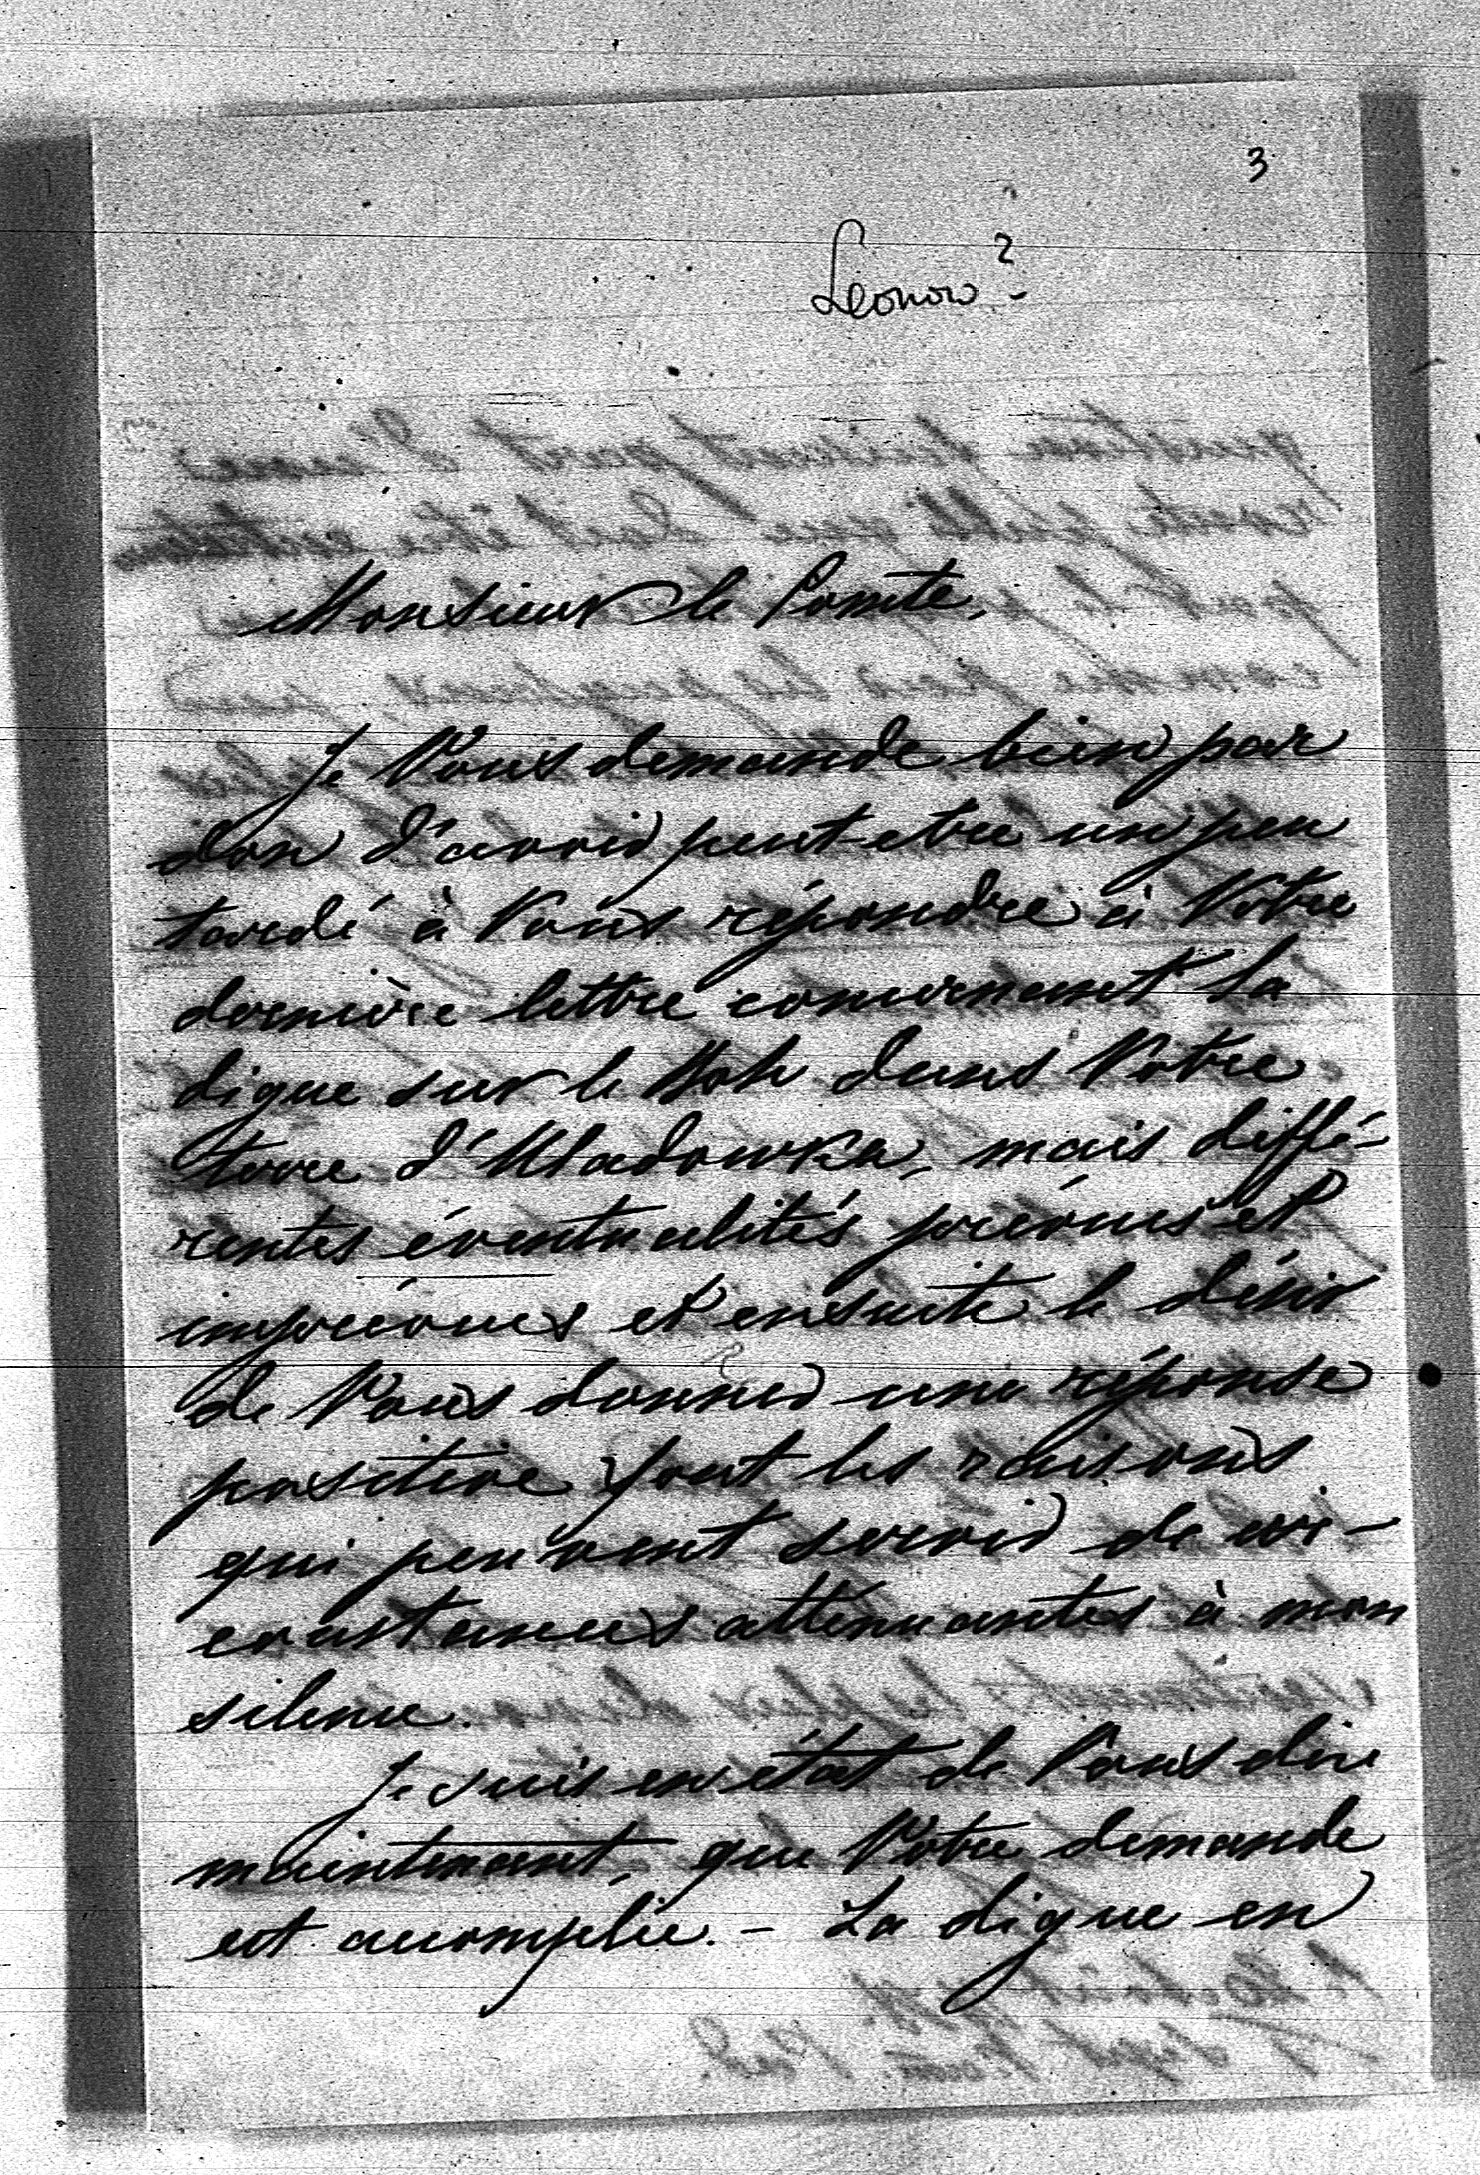 3
Leonow?
Monsieur le Comte,
Je Vous demande bien par
don d'avoir peut-etre un peu
tardé à Vous répondre à Votre
dernière lettre concernant la
digue sur le Boh dans Votre
terre d'Uladowka, mais diffé-
rentes éventualités prévues et
imprévues et ensuite le désir
de Vous donner une réponse
positive font les raisons
qui peuvent servir de cir-
constances attenuantes à mon
silence.
Je suis en état de Vous dire
maintenant, que Votre demande
est accomplie. - La digue en